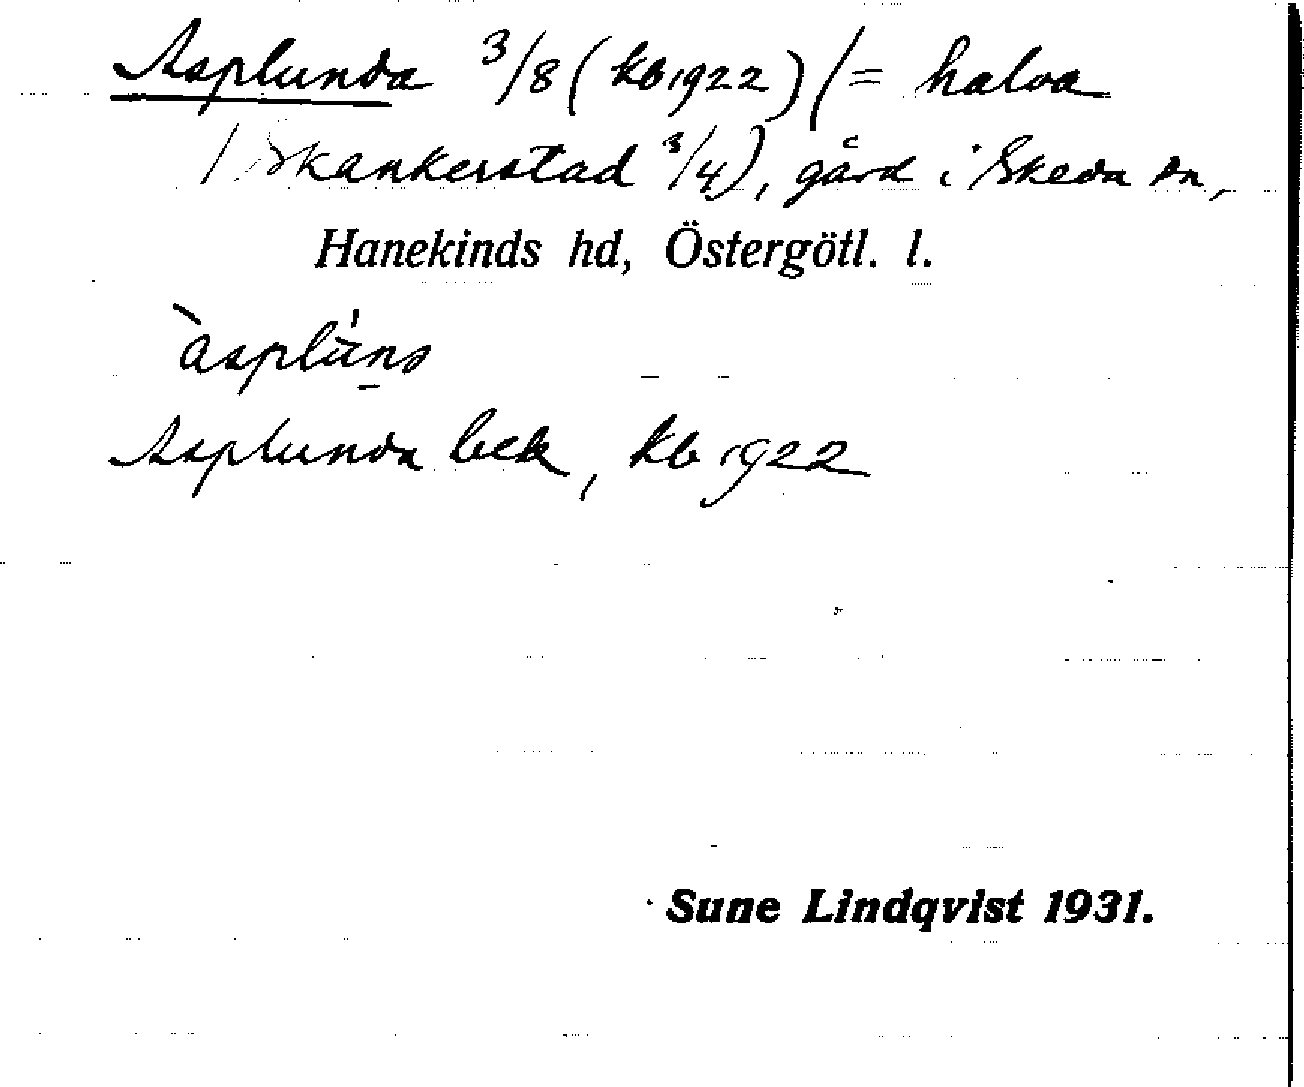 Asplunda 3/8 (kb 1922) (= halva
Skankerstad 3/4), gård i Skeda sn,
Hanekinds hd, Östergötl. l.
àsplùns
Asplunda bek, kb 1922
Sune Lindqvist 1931.